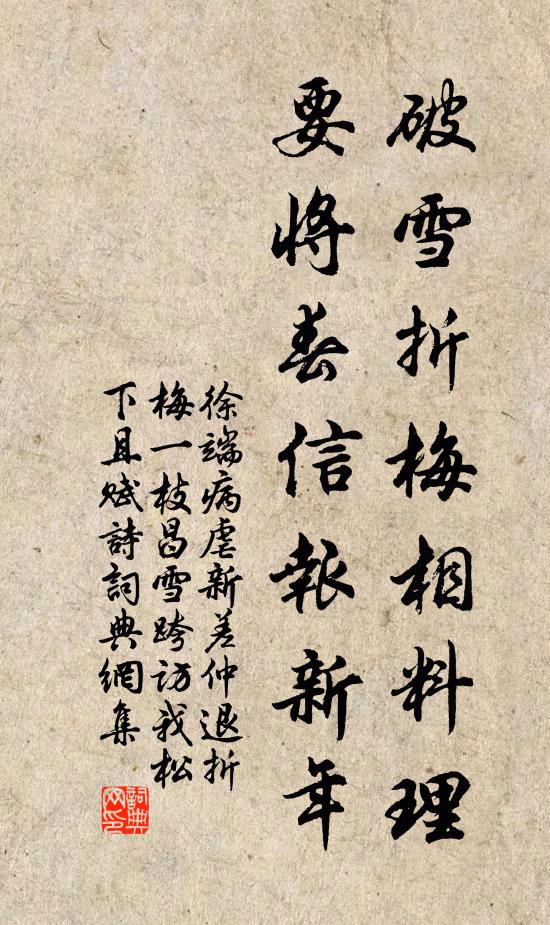 破雪折梅相料理
要將春信報新年
徐端病虐新差仲退折
梅一枝昌雪跨访我松
下且赋詩詞典網集
詞典網印